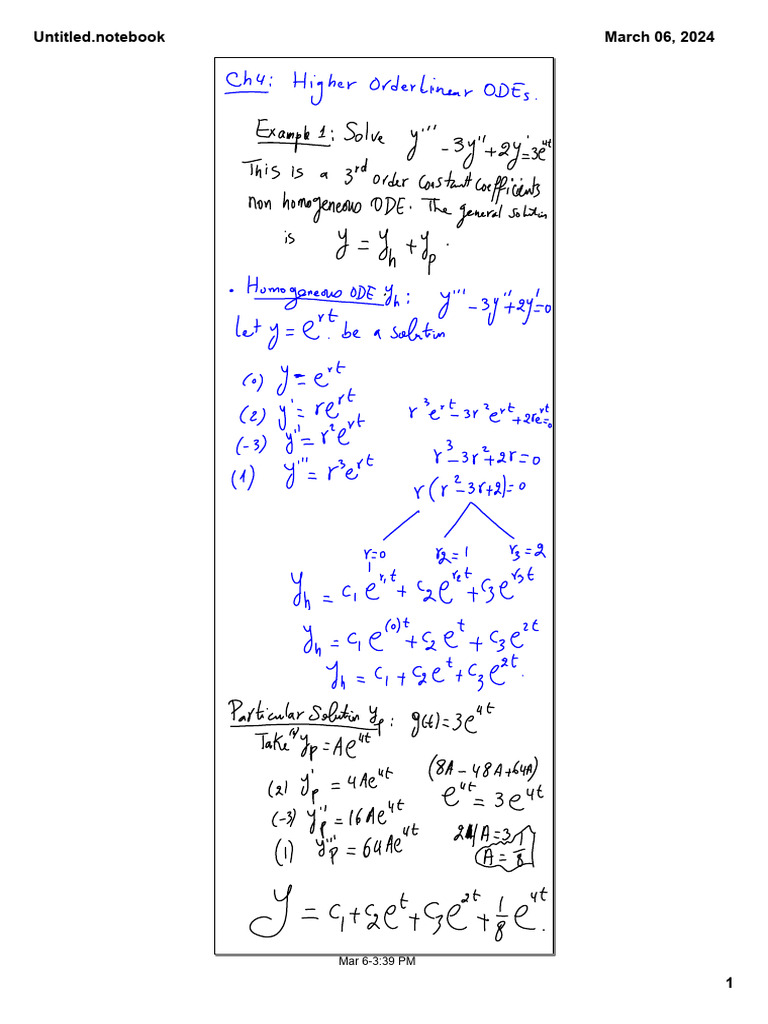 Untitled.notebook March 06, 2024
Ch4: Higher Order Linear ODEs.
Example 1: Solve y''' - 3y'' + 2y' = 3e^{4t}
This is a 3rd order constant coefficients
non homogeneous ODE. The general solution
is y = y_h + y_p.
• Homogeneous ODE y_h: y''' - 3y'' + 2y' = 0
let y = e^{rt}. be a solution
(0) y = e^{rt}
(2) y' = re^{rt} r^3e^{rt} - 3r^2e^{rt} + 2re^{rt} = 0
(-3) y'' = r^2e^{rt}
r^3 - 3r^2 + 2r = 0
(1) y''' = r^3e^{rt}
r(r^2 - 3r + 2) = 0
r_1 = 0 r_2 = 1 r_3 = 2
y_h = c_1e^{r_1t} + c_2e^{r_2t} + c_3e^{r_3t}
y_h = c_1e^{(0)t} + c_2e^t + c_3e^{2t}
y_h = c_1 + c_2e^t + c_3e^{2t}.
Particular Solution y_p: g(t) = 3e^{4t}
Take y_p = Ae^{4t}
(2) y_p' = 4Ae^{4t} (8A - 48A + 64A)
(-3) y_p'' = 16Ae^{4t} e^{4t} = 3e^{4t}
(1) y_p''' = 64Ae^{4t} 24A = 3
A = 1/8
y = c_1 + c_2e^t + c_3e^{2t} + 1/8 e^{4t}.
Mar 6-3:39 PM
1